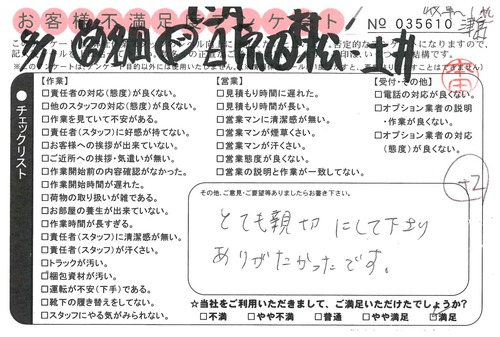 お客様不満足 アンケート
No 035610
チェックリスト
【作業】
□責任者の対応(態度)が良くない。
□他のスタッフの対応(態度)が良くない。
□作業を見ていて不安がある。
□責任者(スタッフ)に好感が持てない。
□お客様への挨拶が出来ていない。
□ご近所への挨拶・気遣いが無い。
□作業開始前の内容確認がなかった。
□作業開始時間が遅れた。
□荷物の取り扱いが雑である。
□お部屋の養生が出来ていない。
□作業時間が長すぎる。
□責任者(スタッフ)に清潔感が無い。
□責任者(スタッフ)が汗くさい。
□トラックが汚い。
□梱包資材が汚い。
□運転が不安(下手)である。
□靴下の履き替えをしてない。
□スタッフにやる気がみられない。
【営業】
□見積もり時間に遅れた。
□見積もり時間が長い。
□営業マンに清潔感が無い。
□営業マンが煙草くさい。
□営業マンが汗くさい。
□営業態度が良くない。
□営業の説明と作業が一致してない。
【受付・その他】
□電話の対応が良くない。
□オプション業者の説明
・作業が良くない。
□オプション業者の対応
(態度)が良くない。
+2
その他、ご意見・ご要望等ありましたらお書き下さい。
とても親切にして下さり
ありがたかったです。
☆当社をご利用いただきまして、ご満足いただけたでしょうか?
□不満 □やや不満 □普通 □やや満足 □満足